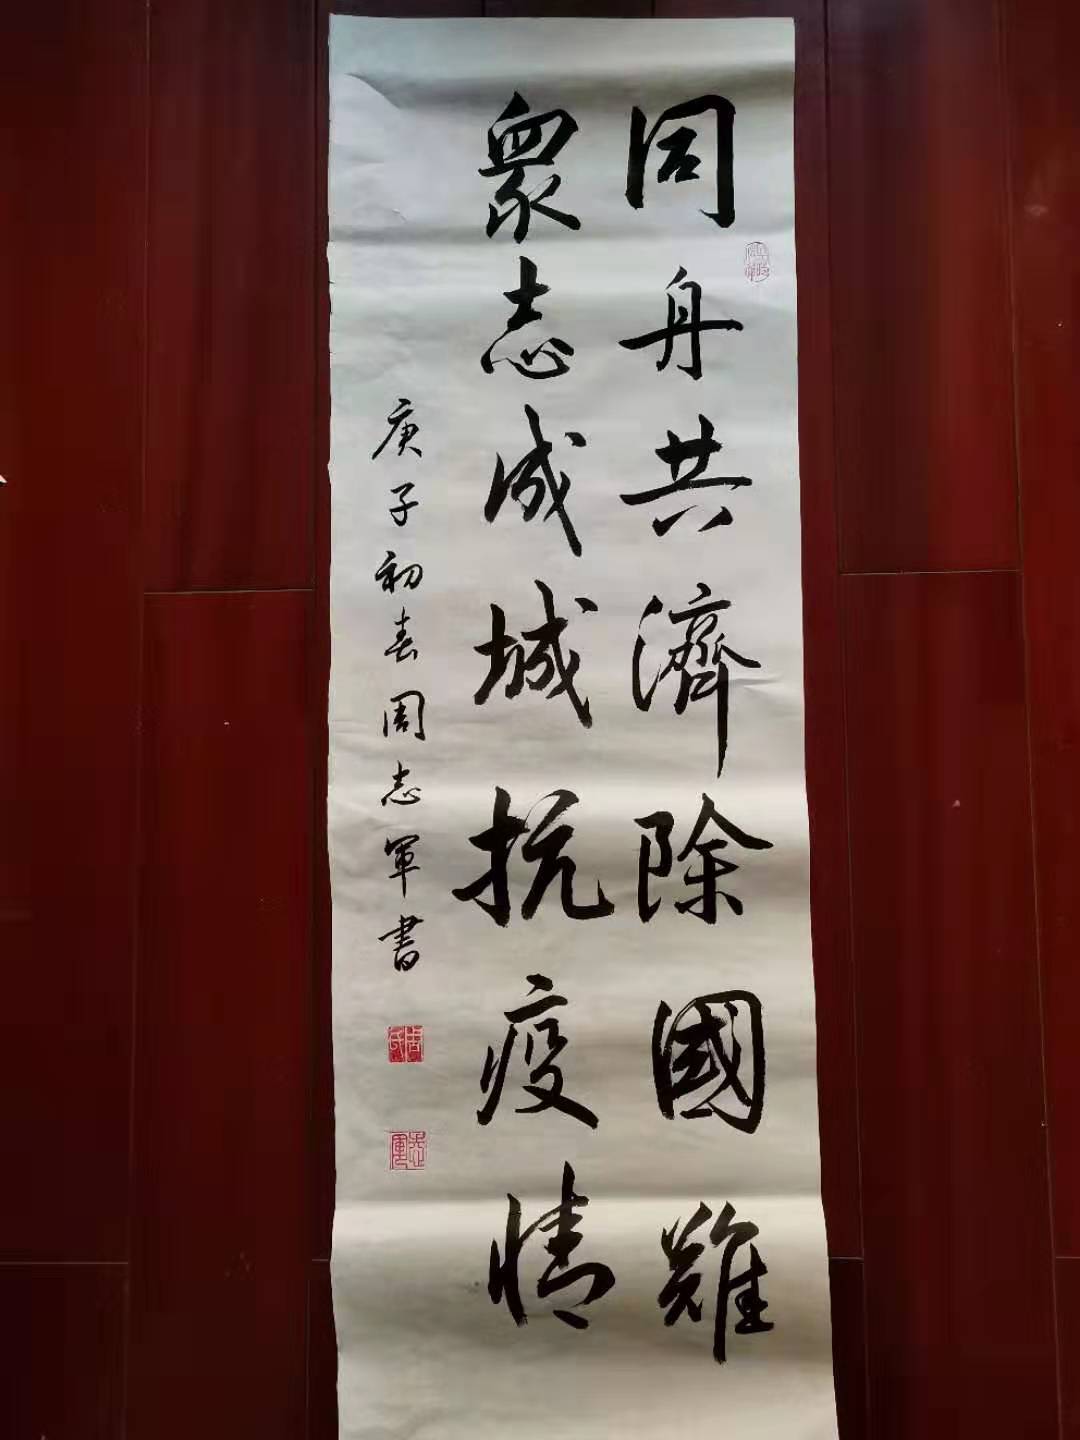 同舟共濟除國難
衆志成城抗疫情
庚子初春周志軍書
周氏
志軍